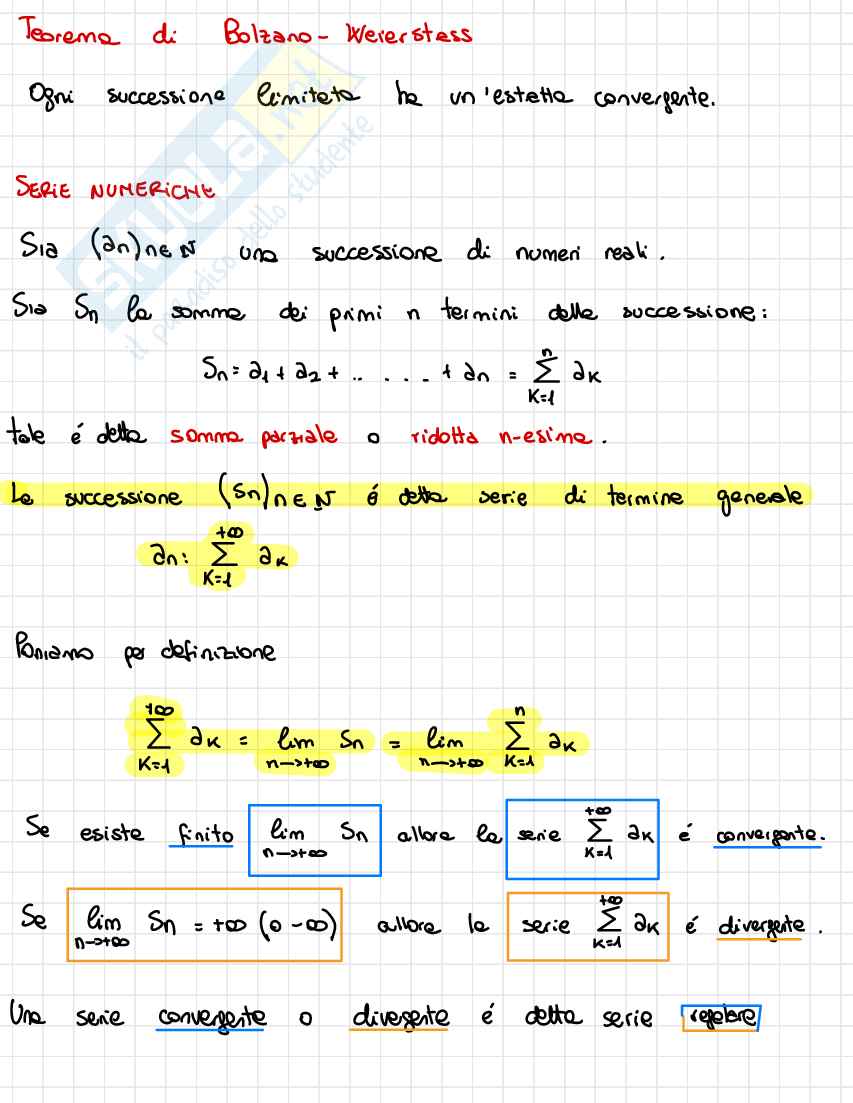 Teorema di Bolzano - Weierstess
Ogni successione limitata ha un'estetta convergente.
SERIE NUMERICHE
Sia (an)n∈N una successione di numeri reali.
Sia Sn la somma dei primi n termini della successione:
Sn = a1 + a2 + .. . . . . + an = ∑ k=1 n ak
tale é detta somma parziale o ridotta n-esima.
La successione (Sn)n∈N é detta serie di termine generale
an: ∑ k=1 +∞ ak
Poniamo per definizione
∑ k=1 +∞ ak = lim n→+∞ Sn = lim n→+∞ ∑ k=1 n ak
Se esiste finito lim n→+∞ Sn allora la serie ∑ k=1 +∞ ak é convergente.
Se lim n→+∞ Sn = +∞ (o -∞) allora la serie ∑ k=1 +∞ ak é divergente.
Una serie convergente o divergente é detta serie regolare
SKUOLA.net
il paradiso dello studente